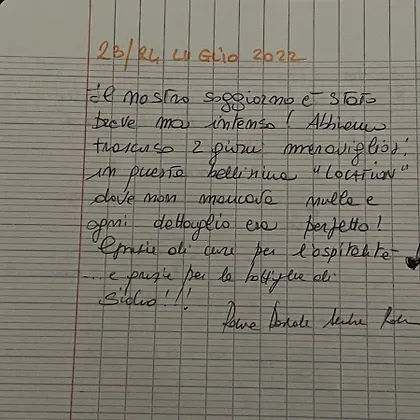 23/24 LUGLIO 2022
Il nostro soggiorno è stato
breve ma intenso! Abbiamo
trascorso 2 giorni meravigliosi
in questa bellissima "LOCATION"
dove non mancava nulla e
ogni dettaglio era perfetto!
Grazie di cuore per l'ospitalità
... e grazie per la bottiglia di
sidro!!!